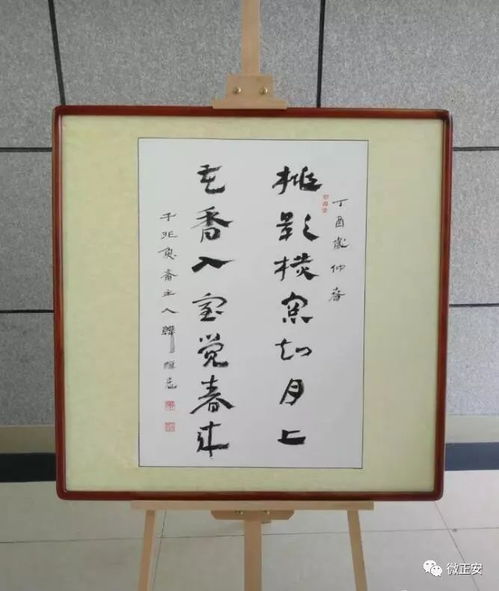 丁酉岁仲春
影横窗知月上
花香入室觉春来
于非鱼斋主人韩
微正安